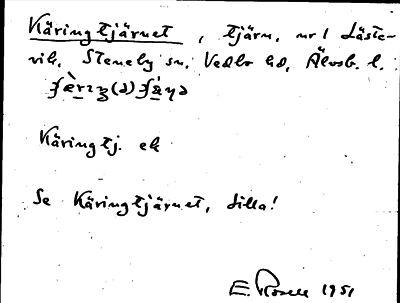 Käringtjärnet, tjärn, nr 1 Låste-
vik, Steneby sn, Vedbo hd, Älvsb. l.
Käringtj. ek
Se Käringtjärnet, Lilla!
E. Rosell 1951